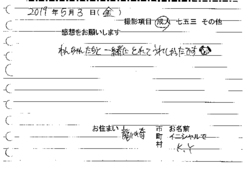 2019年5月3日(金)
撮影項目 成人 七五三 その他
感想をお願いします
わんちゃんたちと一緒にとれてうれしかったです
お住まい 龍ケ崎 市 町 村 お名前 イニシャルで K.Y